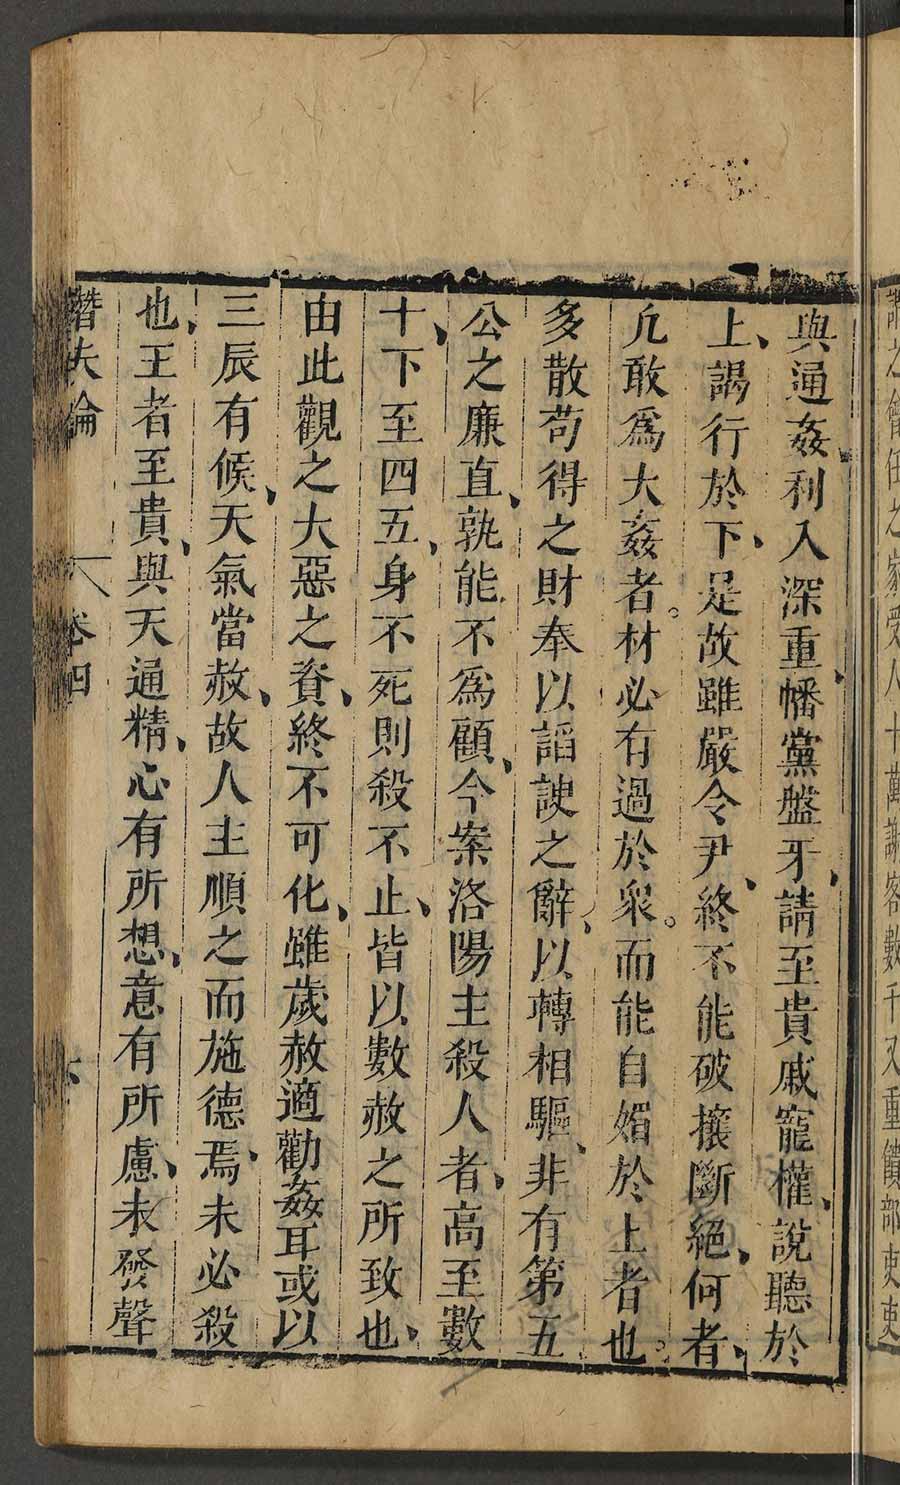 與通姦利入深重幡黨盤牙請至貴戚寵權說聽於
上謁行於下是故雖嚴令尹終不能破攘斷絕何者
凢敢爲大姦者材必有過於衆而能自媚於上者也
多散苟得之財奉以諂諛之辭以轉相驅非有第五
公之廉直孰能不爲顧今案洛陽主殺人者高至數
十下至四五身不死則殺不止皆以數赦之所致也
由此觀之大惡之資終不可化雖歲赦適勸姦耳或以
三辰有候天氣當赦故人主順之而施德焉未必殺
也王者至貴與天通精心有所想意有所慮未發聲
潛夫論
卷四